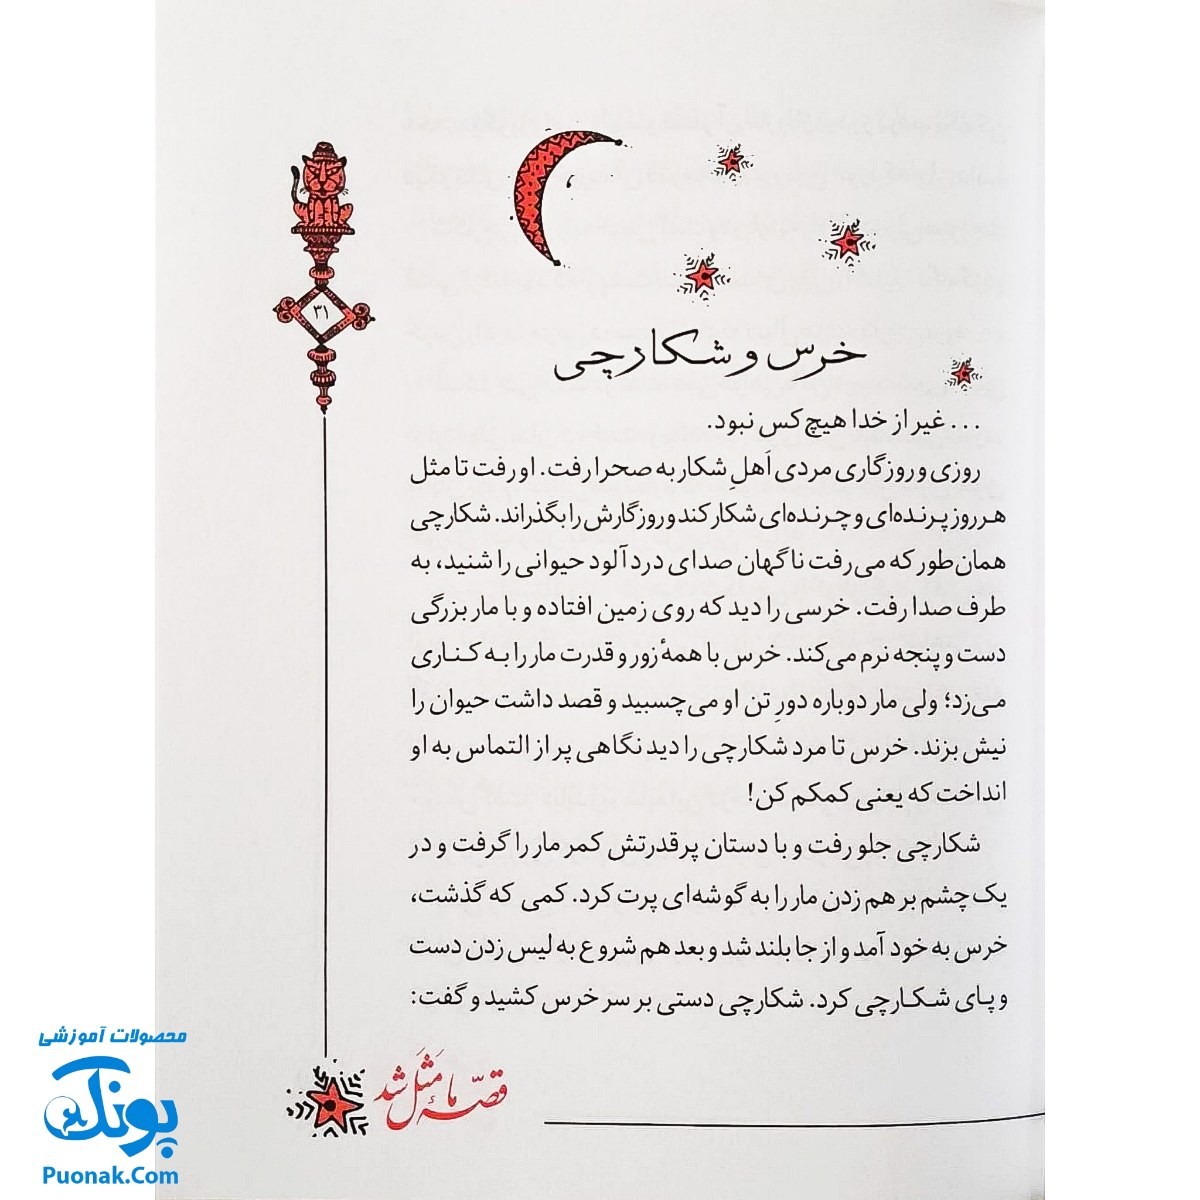 ۳۱
خرس و شکارچی
... غیر از خدا هیچ کس نبود.
روزی و روزگاری مردی اَهلِ شکار به صحرا رفت. او رفت تا مثل
هر روز پرنده‌ای و چرنده‌ای شکار کند و روزگارش را بگذراند. شکارچی
همان‌طور که می‌رفت ناگهان صدای دردآلود حیوانی را شنید، به
طرف صدا رفت. خرسی را دید که روی زمین افتاده و با مار بزرگی
دست و پنجه نرم می‌کند. خرس با همهٔ زور و قدرت مار را به کناری
می‌زد؛ ولی مار دوباره دورِ تن او می‌چسبید و قصد داشت حیوان را
نیش بزند. خرس تا مرد شکارچی را دید نگاهی پر از التماس به او
انداخت که یعنی کمکم کن!
شکارچی جلو رفت و با دستان پرقدرتش کمر مار را گرفت و در
یک چشم بر هم زدن مار را به گوشه‌ای پرت کرد. کمی که گذشت،
خرس به خود آمد و از جا بلند شد و بعد هم شروع به لیس زدن دست
و پای شکارچی کرد. شکارچی دستی بر سر خرس کشید و گفت:
قصّهٔ ما مَثَل شد
محصولات آموزشی
پونک
Puonak.Com